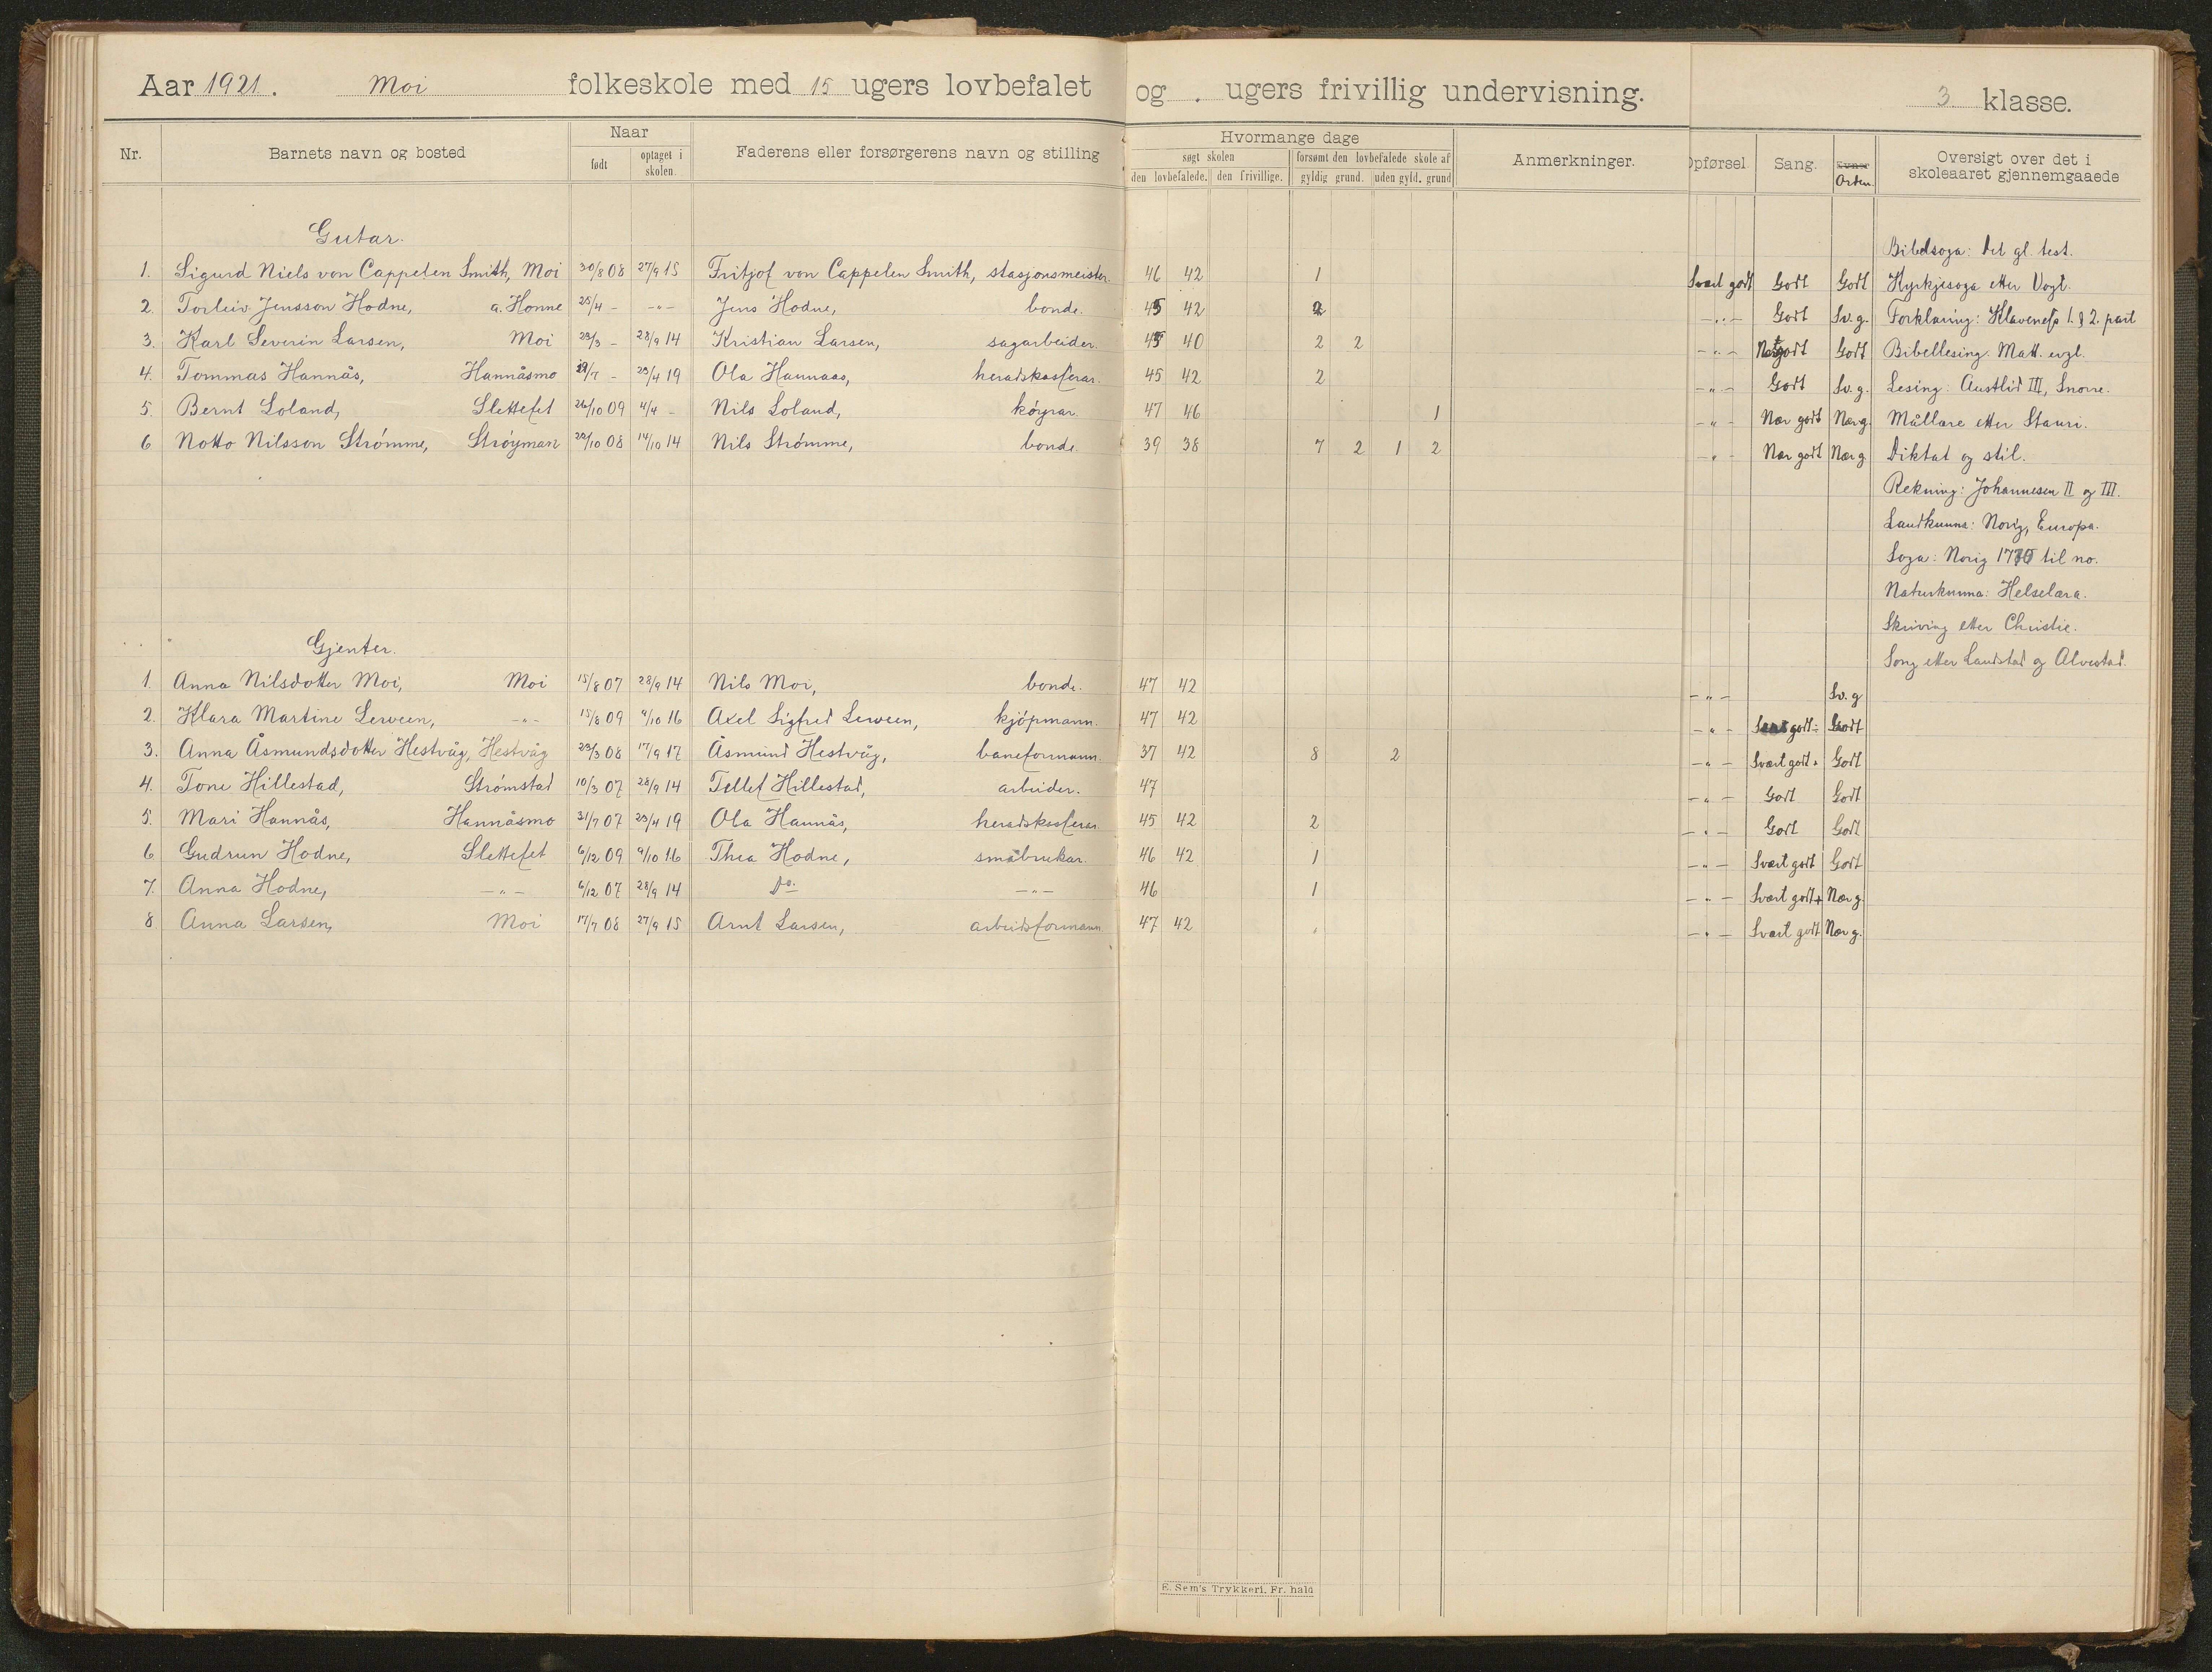 Aar 1921. Moi folkeskole med 15 ugers lovbefalet og . ugers frivillig undervisning. 3 klasse.
Nr. Barnets navn og bosted Naar født optaget i skolen. Faderens eller forsørgerens navn og stilling Hvormange dage søgt skolen den lovbefalede. den frivillige. forsømt den lovbefalede skole af gyldig grund. uden gyld. grund Anmerkninger. Opførsel. Sang. Orden Oversigt over det i skoleaaret gjennemgaaede
Gutar.
Bibelsoga: Det gl. test.
1. Sigurd Niels von Cappelen Smith, Moi 30/8 08 27/9 15 Fritjof von Cappelen Smith, stasjonsmeister. 46 42 1 Svært godt Godt Godt Kyrkjesoga etter Vogt.
2. Torleiv Jensson Hodne, a. Honne 25/4 - -"- Jens Hodne, bonde. 45 42 2 -"- Godt Sv. g. Forklaring: Klaveness 1. & 2. part
3. Karl Severin Larsen, Moi 23/3 - 28/9 14 Kristian Larsen, sagarbeider. 45 40 2 2 -"- Godt Bibellesing: Matt. evgl.
4. Tommas Hannås, Hannåsmo - 23/4 19 Ola Hannaas, heradskasserar. 45 42 2 -"- Godt Sv. g. Lesing: Austlid III, Snorre.
5. Bernt Loland, Slettefet 26/10 09 4/4 - Nils Loland, køyrar. 47 46 1 -"- Nær godt Nær g. Mållære etter Stauri.
6 Notto Nilsson Strømme, Strøyman 22/10 08 14/10 14 Nils Strømme, bonde. 39 38 7 2 1 2 -"- Nær godt Nær g Diktat og stil.
Rekning: Johannesen II og III.
Landkunna: Norig, Europa.
Soga: Norig til no.
Naturkunna: Helselæra.
Skriving etter Christie.
Gjenter.
Song etter Landstad og Alvestad.
1. Anna Nilsdotter Moi, Moi 15/8 07 28/9 14 Nils Moi, bonde. 47 42 -"- Sv. g
2. Klara Martine Serveen, -"- 15/8 09 9/10 16 Axel Sigfred Serveen, kjøpmann. 47 42 -"- godt ÷ Godt
3. Anna Åsmundsdotter Hestvåg, Hestvåg 23/3 08 17/9 17 Åsmund Hestvåg, baneformann. 37 42 8 2 -"- Svært godt + Godt
4. Tone Hillestad, Strømstad 10/3 07 28/9 14 Tellef Hillestad, arbeider. 47 -"- Godt Godt
5. Mari Hannås, Hannåsmo 31/7 07 23/4 19 Ola Hannås, heradskasserar. 45 42 2 -"- Godt Godt
6 Gudrun Hodne, Slettefet 6/12 09 9/10 16 Thea Hodne, småbrukar. 46 42 1 -"- Svært godt Godt
7. Anna Hodne, -"- 6/12 07 28/9 14 Do. -"- 46 1 -"- Svært godt + Nær g.
8 Anna Larsen, Moi 17/7 08 27/9 15 Arnt Larsen, arbeidsformann 47 42 -"- Svært godt Nær g.
E. Sem's Trykkeri. Fr. hald